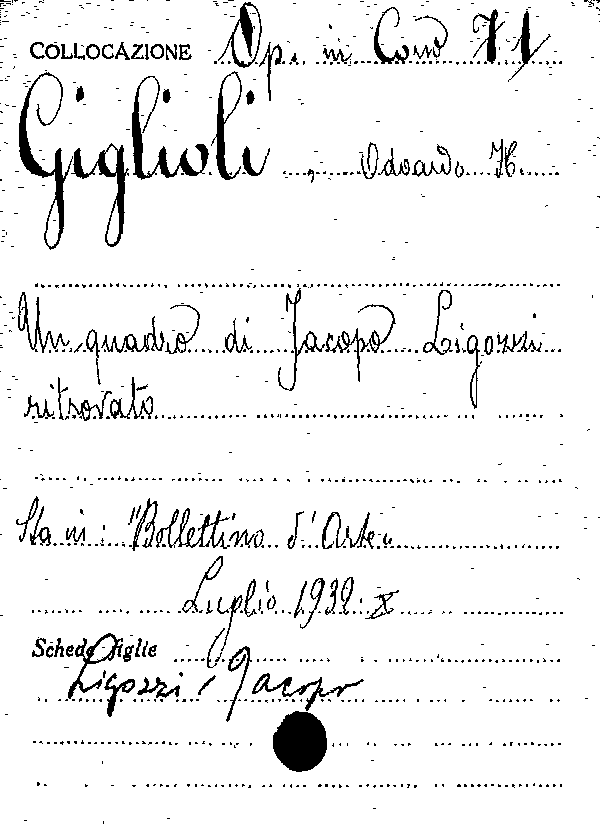 COLLOCAZIONE Op. in Cons 71
Giglioli, Odoardo H.
Un quadro di Jacopo Ligozzi
ritrovato
Sta in: "Bollettino d'Arte"
Luglio 1932. X
Schede figlie
Ligozzi, Jacopo